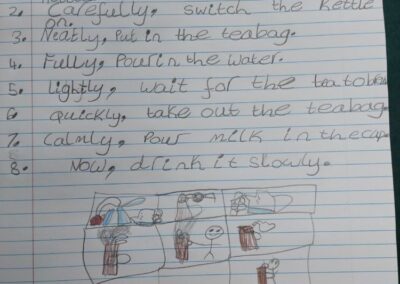 2. Carefully, switch the kettle
on.
3. Neatly, Put in the teabag.
4. Fully, Pour in the water.
5. Lightly, wait for the tea to
6. quickly, take out the teabag
7. Calmly, Pour milk in the cup.
8. Now, drink it slowly.